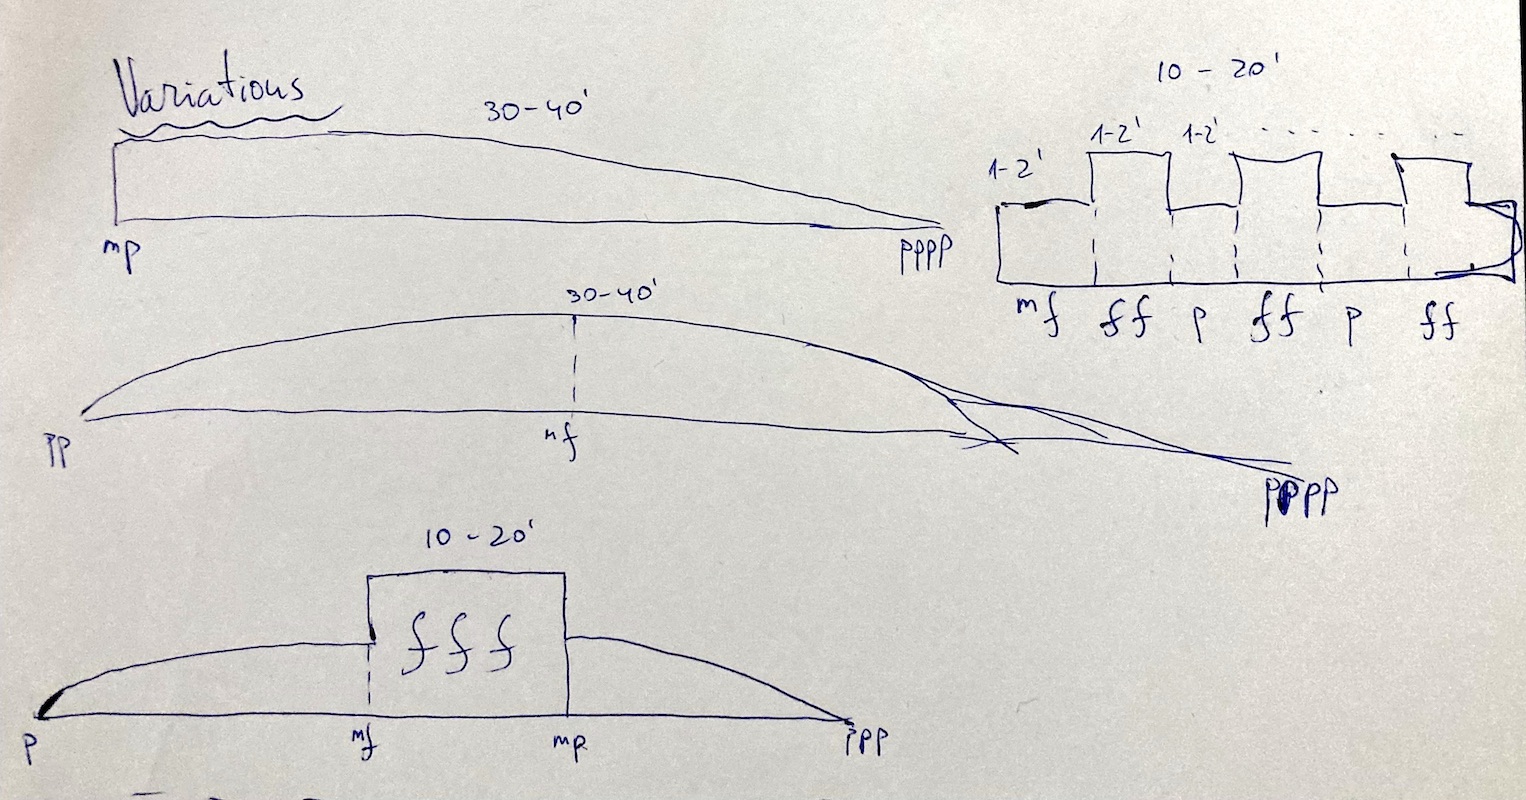 Variations
30-40'
mp pppp
10-20'
1-2' 1-2' 1-2'
mf ff p ff p ff
30-40'
pp mf pppp
10-20'
fff
p mf mp ppp